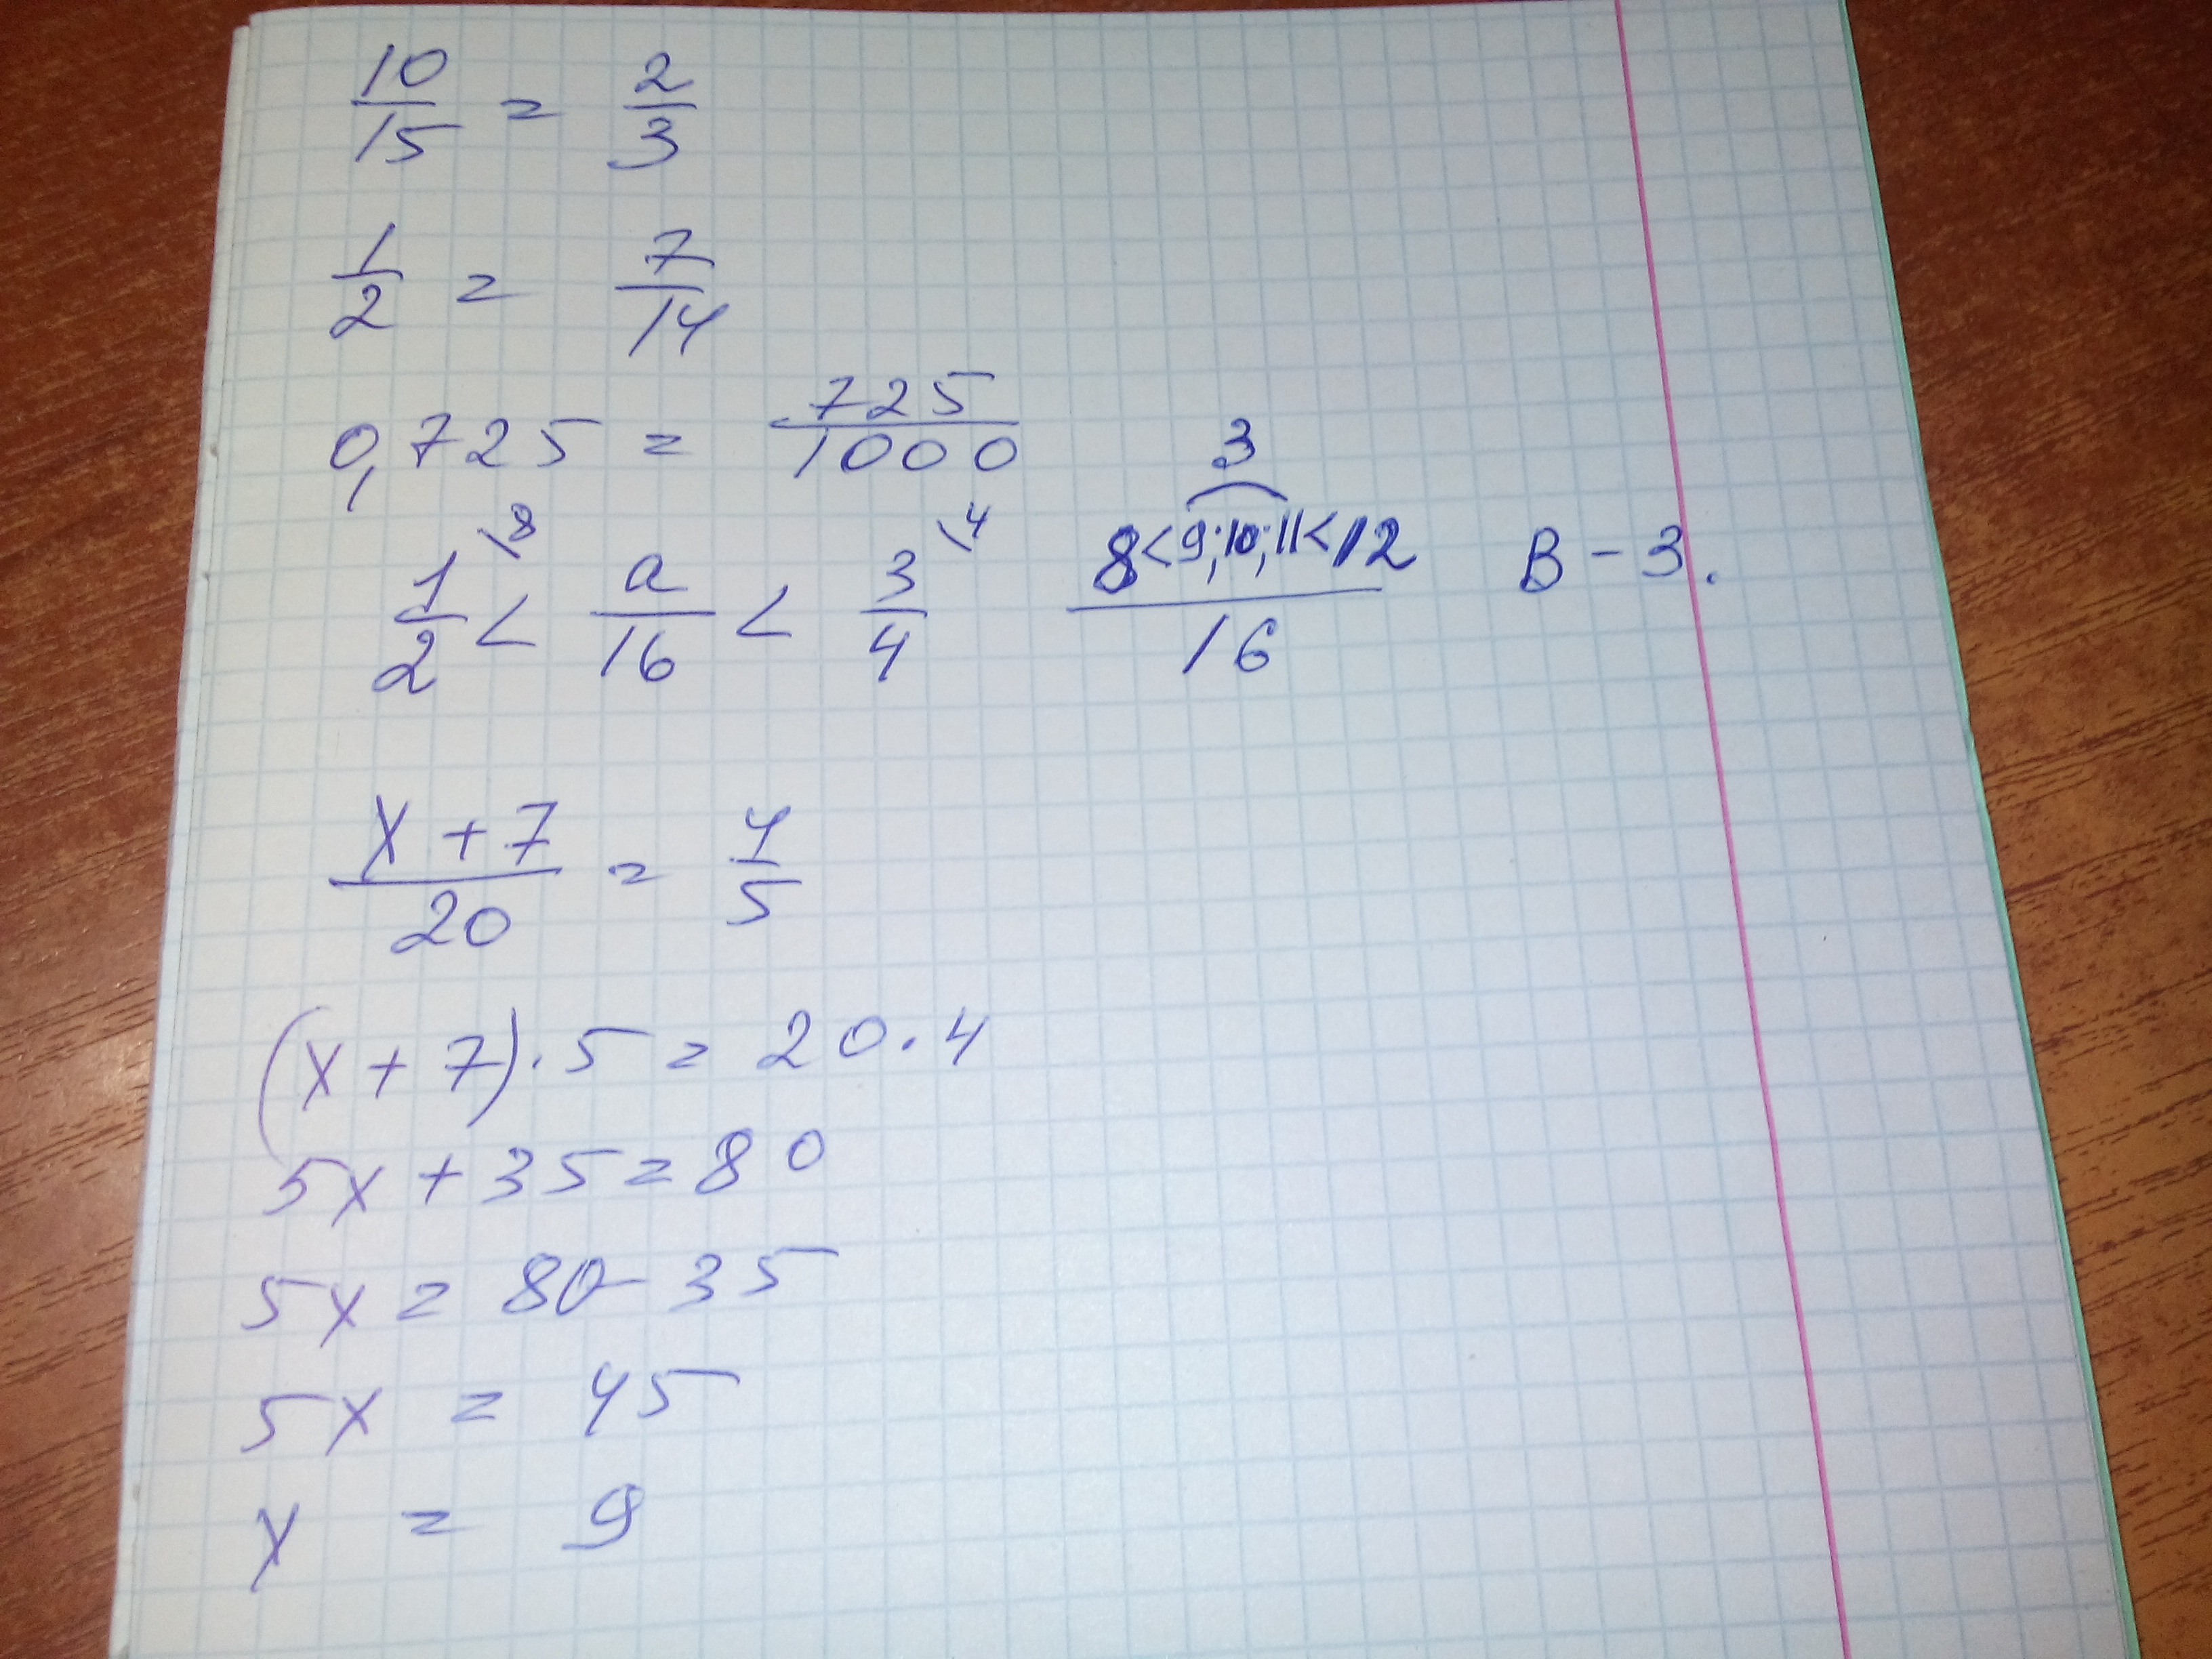 10/15 = 2/3
1/2 = 7/14
0,725 = 725/1000
1/2 \8 < a/16 < 3/4 \4   3   8<9;10;11<12/16   В - 3.
x + 7/20 = 4/5
(x + 7) · 5 = 20 · 4
5x + 35 = 80
5x = 80 - 35
5x = 45
x = 9